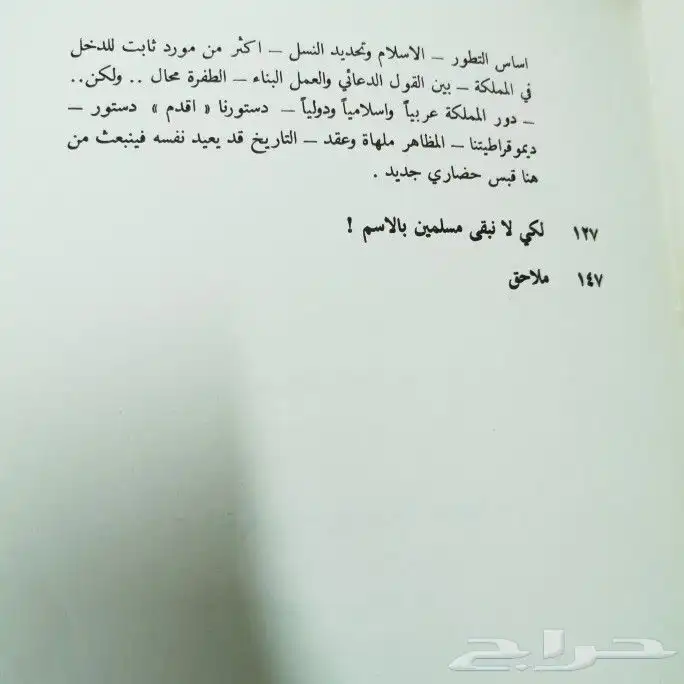 اساس التطور – الاسلام وتحديد النسل – اكثر من مورد ثابت للدخل
في المملكة – بين القول الدعائي والعمل البناء – الطفرة محال .. ولكن..
– دور المملكة عربياً واسلامياً ودولياً – دستورنا « اقدم » دستور –
ديموقراطيتنا – المظاهر ملهاة وعقد – التاريخ قد يعيد نفسه فينبعث من
هنا قبس حضاري جديد .
١٢٧ لكي لا نبقى مسلمين بالاسم !
١٤٧ ملاحق
حراج